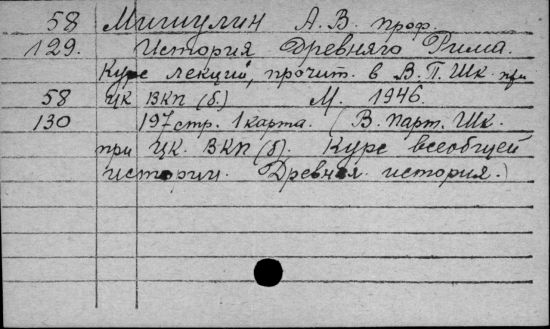 58 Мишулин А. В. проф.
129. История Древняго Рима.
Курс лекций, прочит. в В. П. Шк. при
58 ЦК ВКП (б.) М. 1946.
130 197 стр. 1 карта. (В. Парт. Шк.
при ЦК. ВКП (б). Курс всеобщей
истории. Древняя история.)